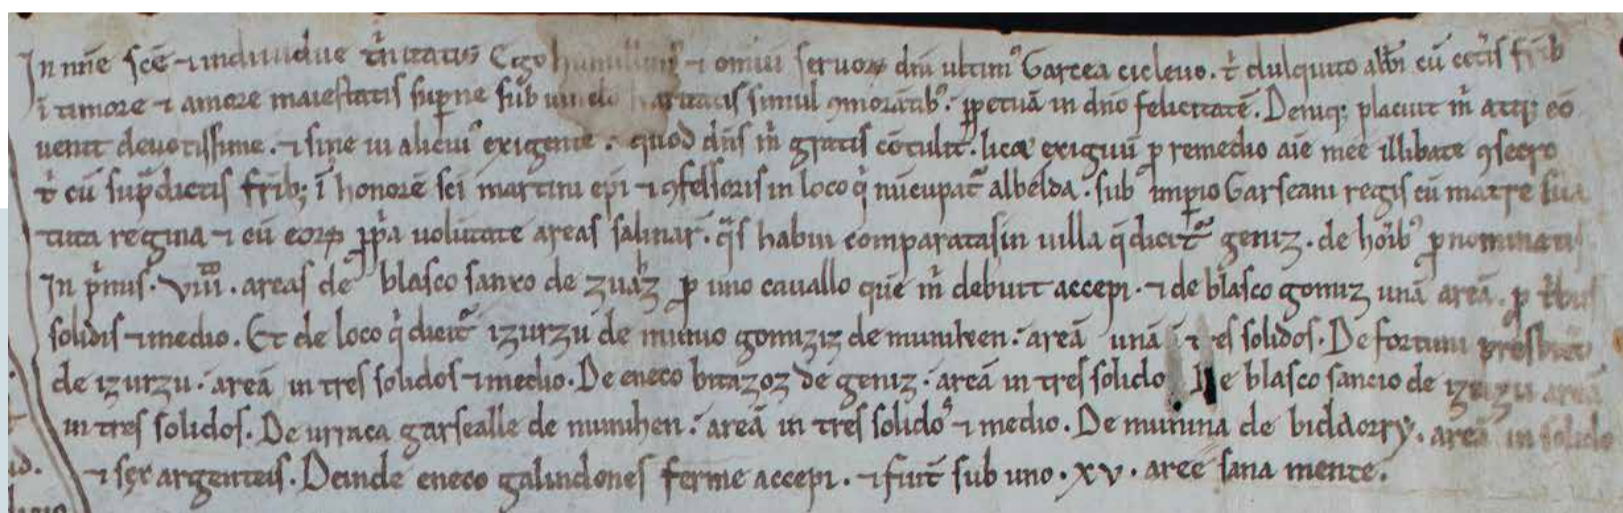 In nn̄e sc̄e ⁊ indiuidue t̄nitatis Ego humillimꝰ ⁊ omniū seruoꝝ dn̄i ultimꝰ Garcea cicleuo. t̄ dulquito abb̄i cū cet̄is fr̄ib
ī timore ⁊ amore maiestatis sup̄ne sub uinclo karitatis simul ꝯmorātibꝰ. ꝑpetuā in dn̄o felicitatē. Deniqꝫ placuit m̄ atqꝫ cō
uenit deuotissime. ⁊ sine ui alicuiꝰ exigente. quod dn̄s m̄ gratis cōtulit. licet exiguū ꝑ remedio aīe meę illibate ꝯsecro
t̄ cū sup̄dictis fr̄ibꝫ ī honorē sc̄i martini ep̄i ⁊ ꝯfessoris in loco q̄ nūcupat̄ albelda. sub imꝑio Garseani regis cū matre sua
tuta regina ⁊ cū eoꝝ ꝓp̄a uolūtate areas salinar̄. q̄s habui comparatas in uilla q̄ dicit̄ geniz. de hōibꝰ p̄nominatis
In p̄mis. VIII. areas de blasco sanxo de zuhaz ꝓ uno cauallo quē m̄ debuit accepi. ⁊ de blasco gomiz unā areā. ꝓ t̄bus
solidis ⁊ medio. Et de loco q̄ dicit̄ izurzu de munio gomiziz de muniken. areā unā ī tres solidos. De fortuni presbit̄o
de izurzu. areā in tres solidos ⁊ medio. De eneco bitazoz de geniz. areā in tres solido De blasco sancio de izurzu areā
in tres solidos. De urraca garsealle de munihen. areā in tres solidoˢ ⁊ medio. De munina de bidaorry. areā in solido
⁊ sex argenteis. Deinde eneco galindones ferme accepi. ⁊ fuit̄ sub uno. XV. areę sana mente.